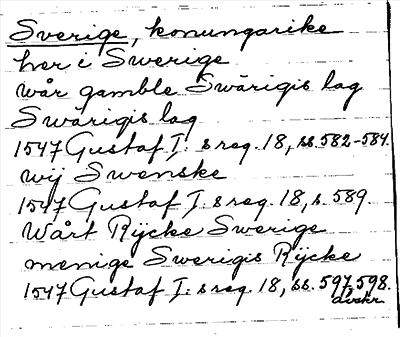 Sverige, konungarike
her i Swerige
wår gamble Swärigis lag
Swärigis lag
1547 Gustaf I: s reg. 18, ss. 582-584.
wij Swenske
1547 Gustaf I: s reg. 18, s. 589.
Wårt Rijcke Swerige
menige Swerigis Rijcke
1547 Gustaf I: s reg. 18, ss. 597, 598.
avskr.